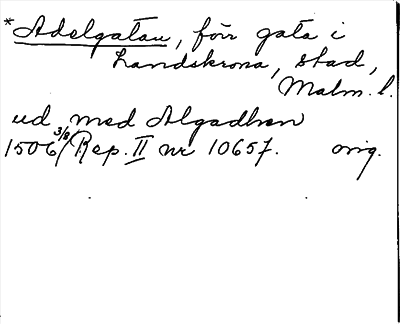 *Adelgatan, förr gata i
Landskrona, stad,
Malm. l.
ud med Algadhen
1506 3/8 / Rep. II nr 10657. orig.